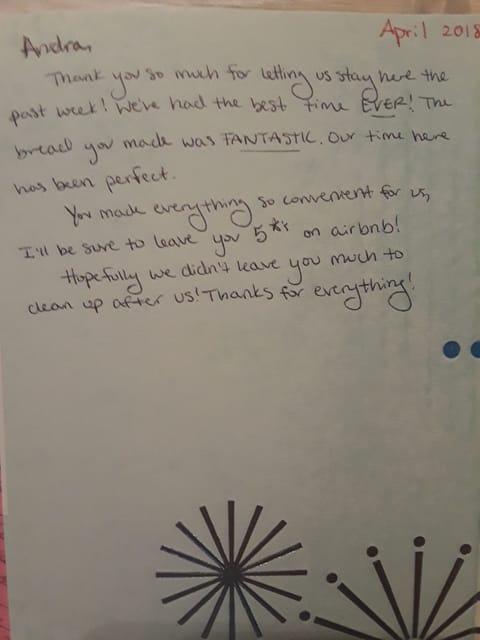 April 2018
Andra,
Thank you so much for letting us stay here the
past week! We've had the best time EVER! The
bread you made was FANTASTIC. Our time here
has been perfect.
You made everything so convenient for us,
I'll be sure to leave you 5**'s on airbnb!
Hopefully we didn't leave you much to
clean up after us! Thanks for everything!